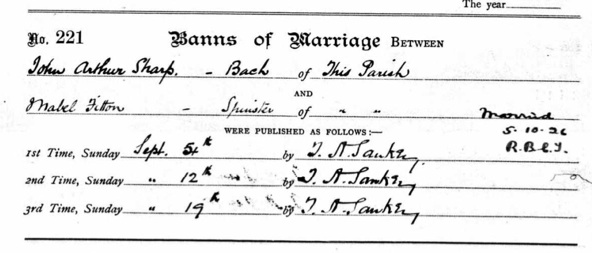 The year
No. 221 Banns of Marriage BETWEEN
John Arthur Sharp. - Bach of This Parish
AND
Mabel Fitton - Spinster of " "
Married
WERE PUBLISHED AS FOLLOWS:—
5.10.26
1st Time, Sunday Sept. 5th by T. A. Sankey.
R.B.L.T.
2nd Time, Sunday " 12th by T. A. Sankey
3rd Time, Sunday " 19th by T. A. Sankey